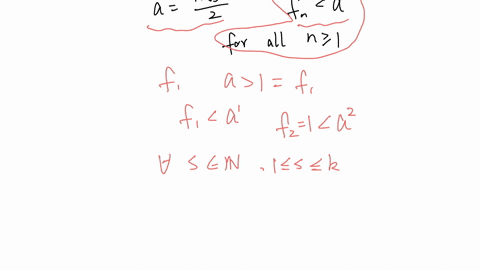 a = 2
fn < a
for all n ≥ 1
f1 a > 1 = f1
f1 < a^1 f2 = 1 < a^2
∀ s ∈ ℕ , 1 ≤ s ≤ k